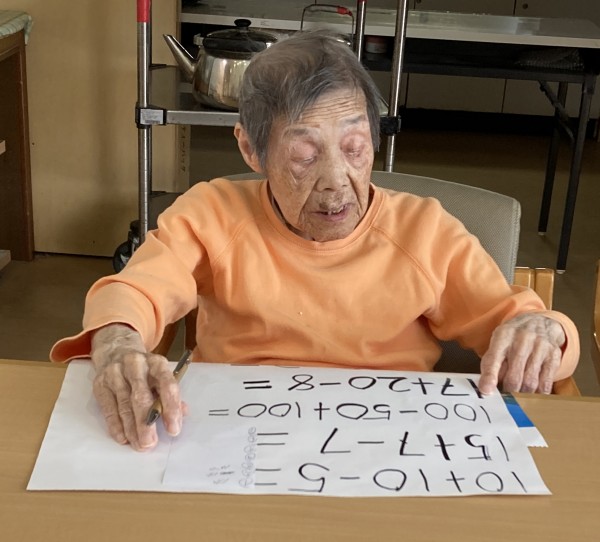 10+10−5=
15+7−7=
100−50+100=
17+20−8=